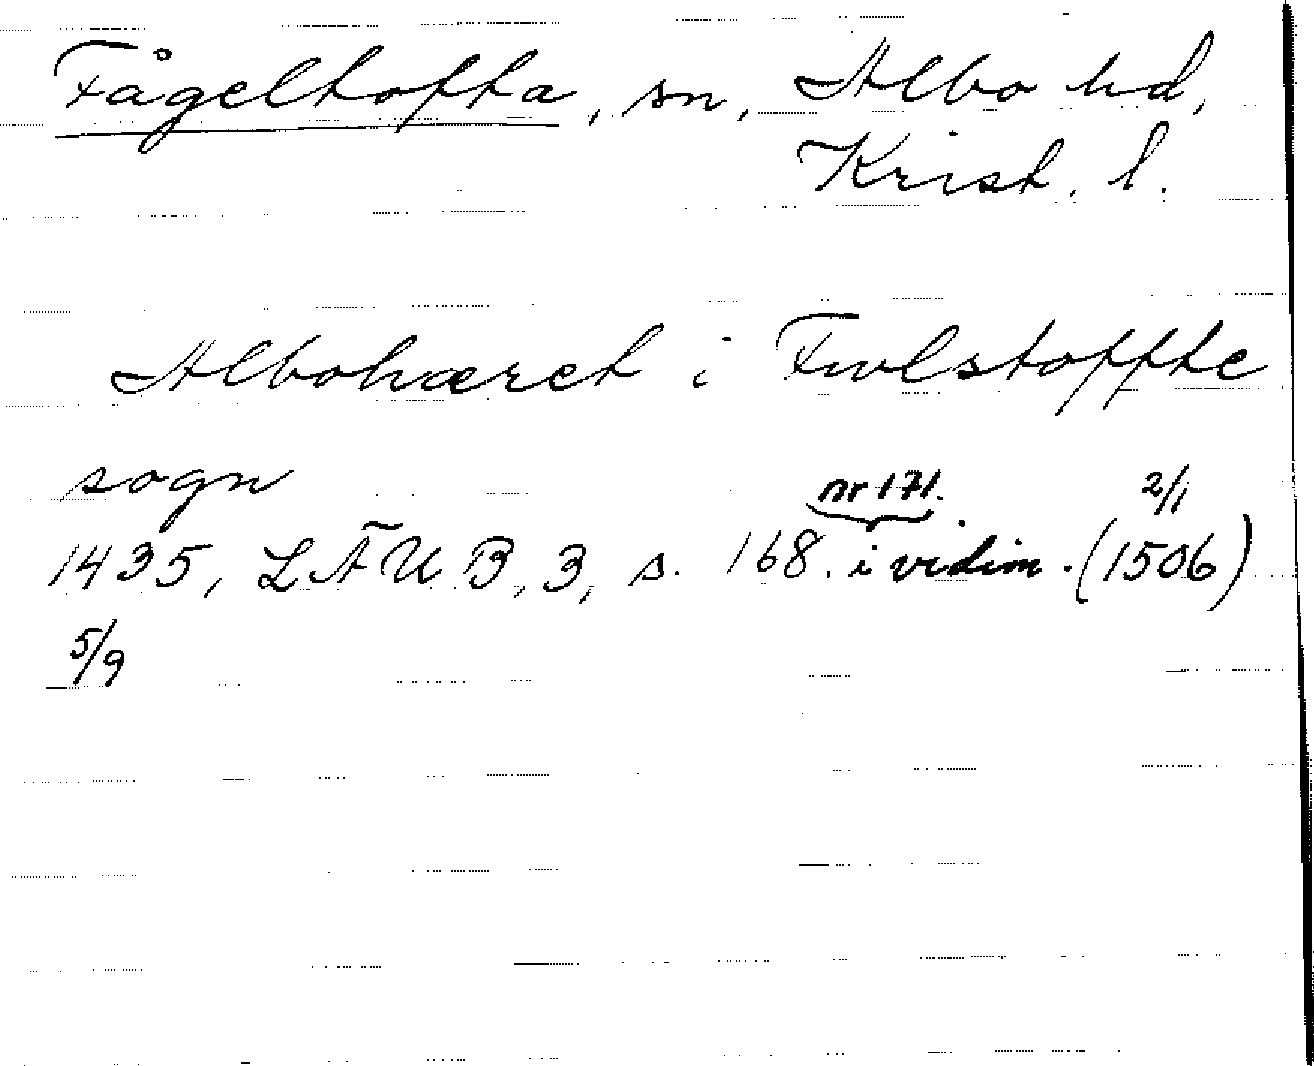 Fågeltofta, sn, Albo hd,
Krist. l.
Albohæret i Fwlstoffte
sogn
nr 171. 2/1
1435, LÄUB, 3, s. 168. i vidim. (1506)
5/9